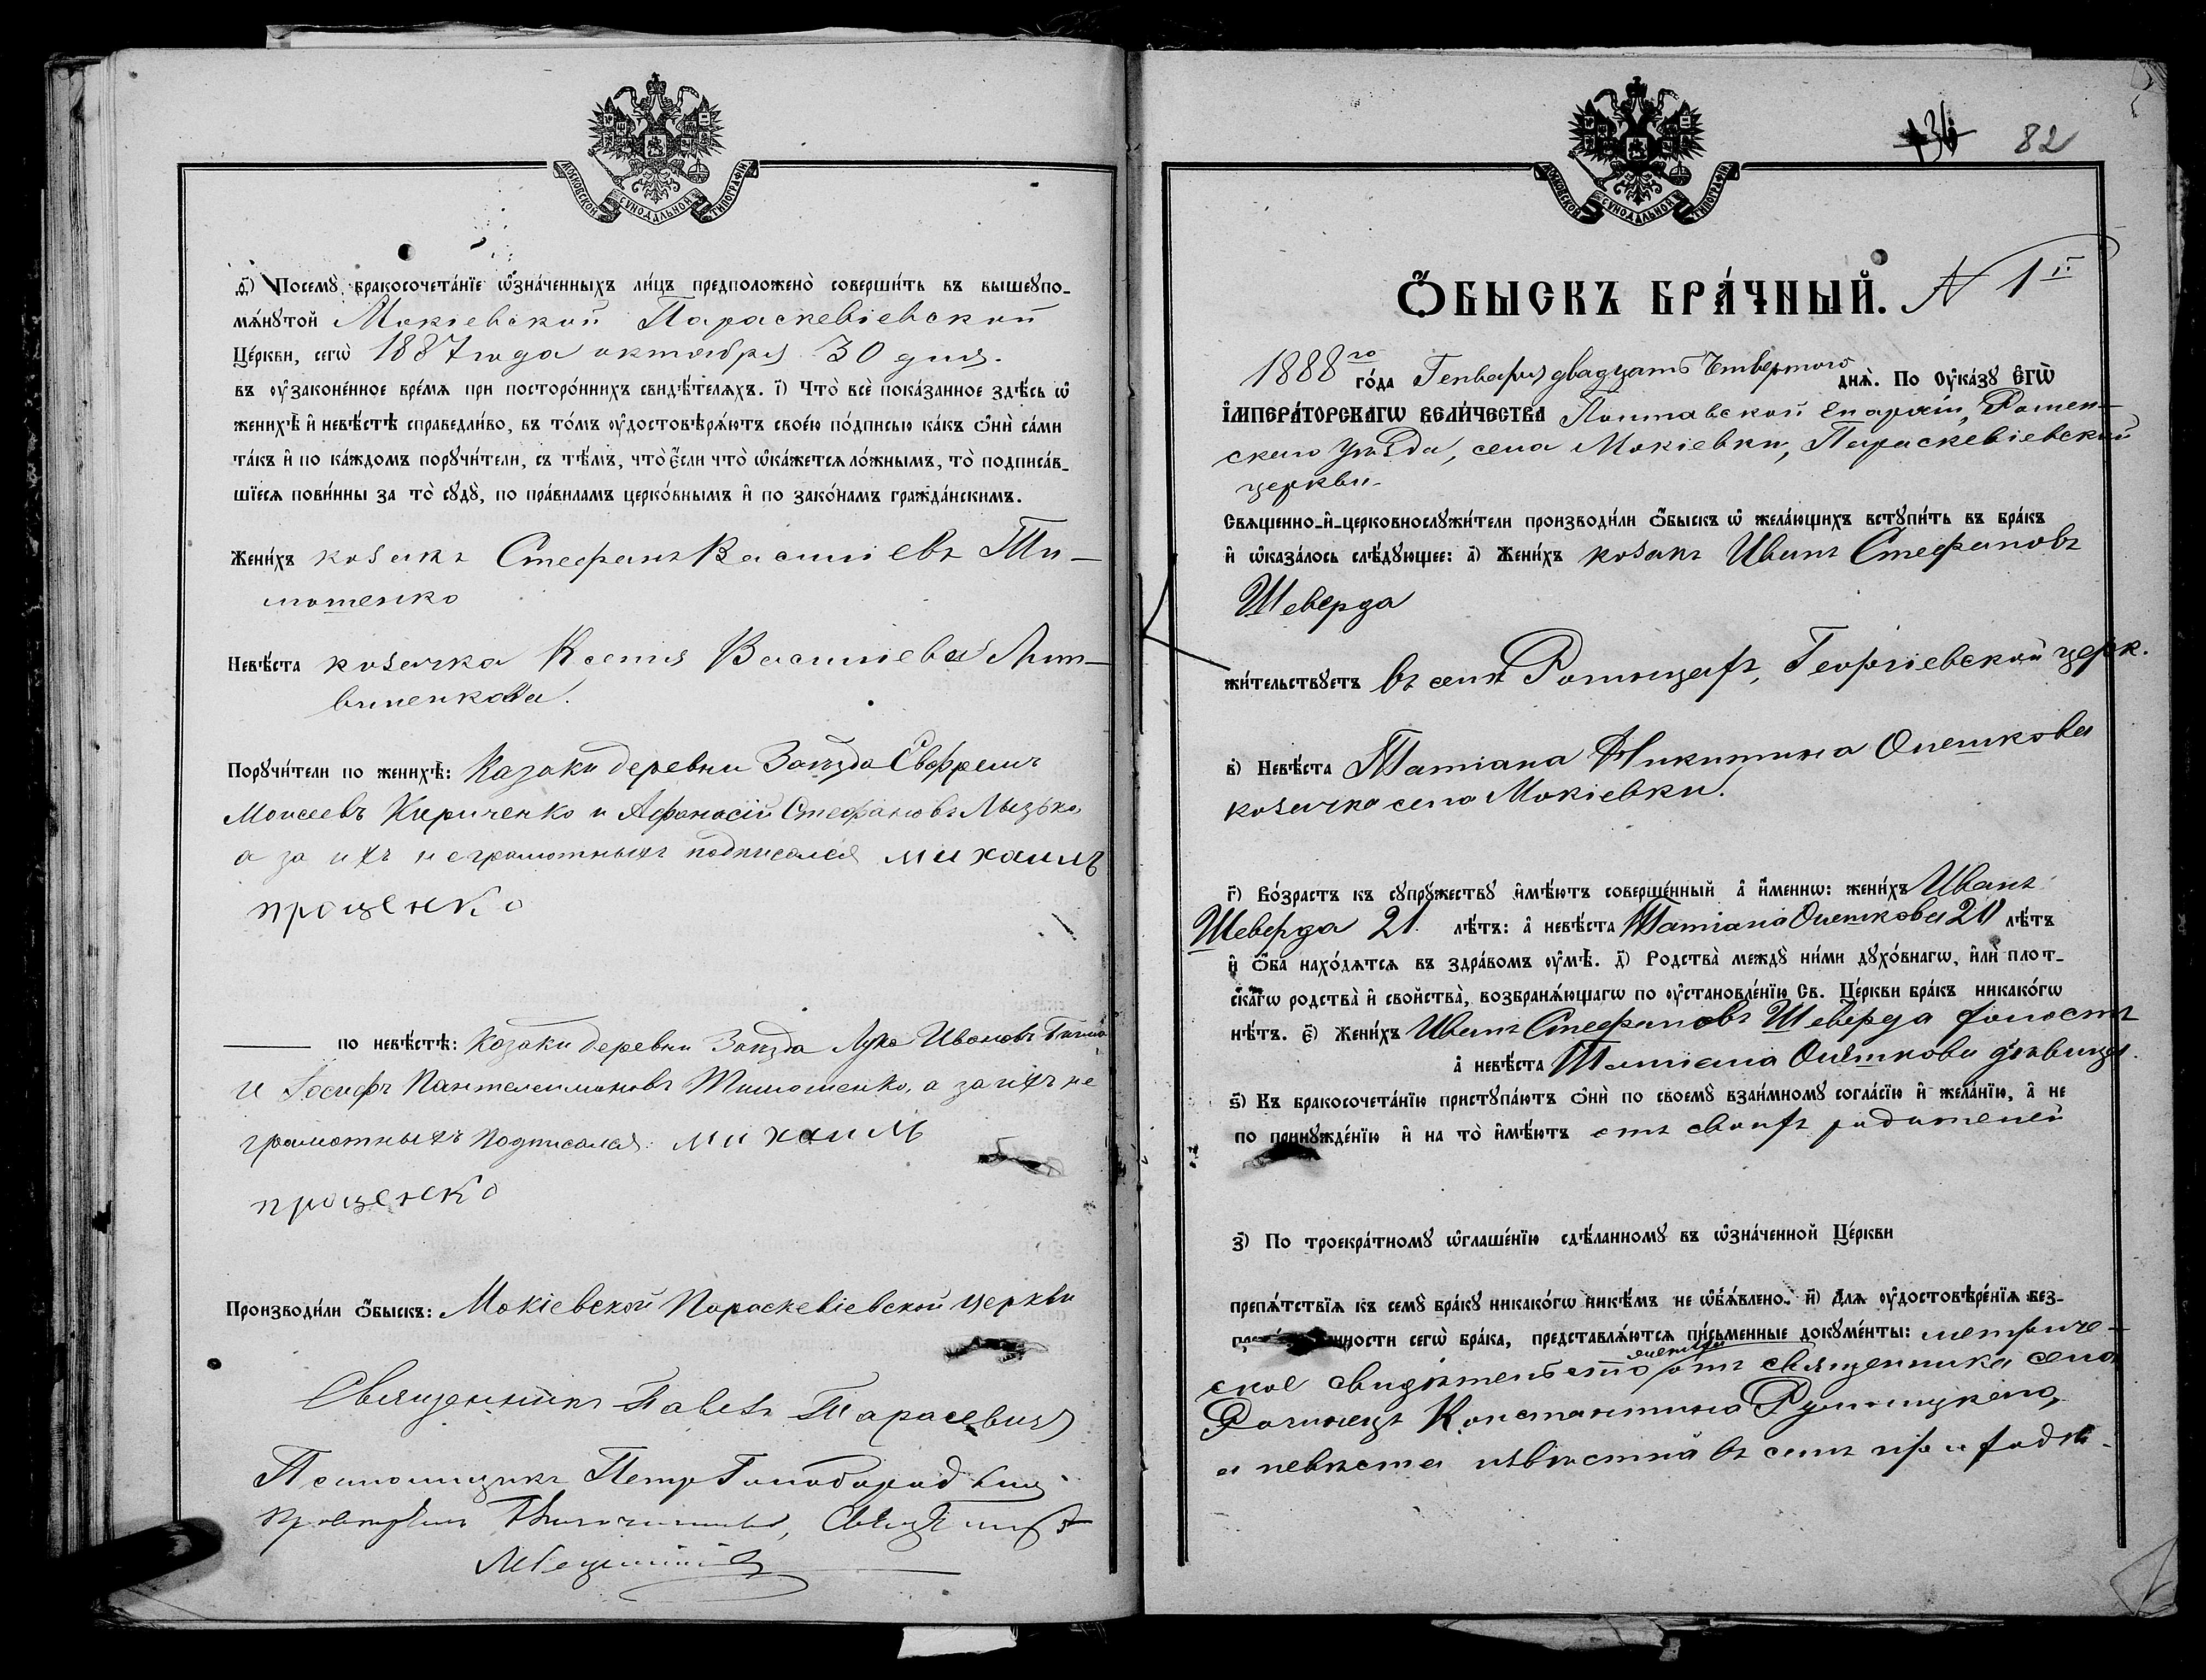 МОСКОВСКОЙ СѴНОДАЛЬНОЙ ТИПОГРАФІИ
ѳ҃) Посемꙋ̀ бракосочета́нїе ѡ҆зна́ченныхъ ли́цъ предположено̀ соверши́ть въ вышеꙋпо-
мѧ́нꙋтой Мокіевской Параскевіевской
Це́ркви, сегѡ̀ 1887 года октября 30 дня.
въ ᲂу҆законе́нное вре́мѧ при посторо́ннихъ свидѣ́телѧхъ. і҃) Что̀ всѐ пока́занное здѣ́сь ѡ҆
женихѣ̀ и҆ невѣ́стѣ справедли́во, въ то́мъ ᲂу҆достовѣрѧ́ютъ свое́ю по́дписью ка́къ ѻ҆нѝ са́ми
та́къ и҆ по ка́ждомъ порꙋчи́тели, съ тѣ́мъ, что̀ є҆́сли что̀ ѡ҆ка́жетсѧ ло́жнымъ, то̀ подписа́в-
шїесѧ пови́нны за то̀ сꙋдꙋ̀, по пра́виламъ церко́внымъ и҆ по зако́намъ гражда́нскимъ.
Жени́хъ козакъ Стефанъ Василіевъ Ти-
мошенко
Невѣ́ста козачка Ксенія Василіева Лит-
виненкова.
Порꙋчи́тели по женихѣ̀: Казаки деревни Заезда Евфремъ
Моисеевъ Кириченко и Афанасій Стефановъ Лызько
а за ихъ неграмотныхъ подписался михаилъ
проценко
по невѣ́стѣ: Козаки деревни Заезда Лука Ивановъ
и Іосифъ Пантелеимоновъ Тимошенко, а за ихъ не
грамотныхъ подписался: михаилъ
проценко
Производи́ли ѻ҆́быскъ: Мокіевской Параскевіевской церкви
Священникъ Павелъ Тарасевичъ
Псаломщикъ Петръ
136 82
МОСКОВСКОЙ СѴНОДАЛЬНОЙ ТИПОГРАФІИ
Ѻ҆́БЫСКЪ БРА́ЧНЫЙ. N 1й
1888го го́да Генваря двадцать четвертого днѧ̀. По ᲂу҆ка́зꙋ Є҆гѡ̀
І҆МПЕРА́ТОРСКАГѠ ВЕЛИ́ЧЕСТВА Полтавской Епархіи, Ромен-
скаго уѣзда, села Мокіевки, Параскевіевской
церкви.
Свѧще́нно-и҆-церковнослꙋжи́тели производи́ли ѻ҆́быскъ ѡ҆ жела́ющихъ встꙋпи́ть въ бра́къ
и҆ ѡ҆каза́лось слѣ́дꙋющее: а҃) Жени́хъ козакъ Иванъ Стефановъ
Шеверда
жи́тельствꙋетъ въ селѣ Георгіевской церк.
в҃) Невѣ́ста Татіана Никитина Олешкова
козачка села Мокіевки.
г҃) Во́зрастъ къ сꙋпрꙋ́жествꙋ и҆мѣ́ютъ соверше́нный а҆ и҆́меннѡ: жени́хъ Иванъ
Шеверда 21 лѣ́тъ: а҆ невѣ́ста Татіана Олешкова лѣ́тъ
и҆ ѻ҆́ба нахо́дѧтсѧ въ здра́вомъ ᲂу҆мѣ̀. д҃) Родства̀ междꙋ̀ ни́ми дꙋхо́внагѡ, и҆лѝ плот-
ска́гѡ родства̀ и҆ свойства̀, возбранѧ́ющагѡ по ᲂу҆становле́нїю Св. Це́ркви бра́къ никако́гѡ
нѣ́тъ. є҃) Жени́хъ Иванъ Стефановъ Шеверда холостъ
а҆ невѣ́ста Татіана Олешкова дѣвица.
ѕ҃) Къ бракосочета́нїю пристꙋпа́ютъ ѻ҆нѝ по своемꙋ̀ взаи́мномꙋ согла́сїю и҆ жела́нїю, а҆ не
по принꙋжде́нїю и҆ на то̀ и҆мѣ́ютъ отъ своихъ родителей
з҃) По троекра́тномꙋ ѡ҆глаше́нїю сдѣ́ланномꙋ въ ѡ҆зна́ченной Це́ркви
препѧ́тствїѧ къ семꙋ̀ бра́кꙋ никако́гѡ никѣ́мъ не ѡ҆б̾ѧ́влено. и҃) Длѧ ᲂу҆достовѣре́нїѧ без-
сегѡ̀ бра́ка, представлѧ́ютсѧ пи́сьменные докꙋме́нты: метриче-
ское свидѣтельство отъ священника села
Константина
а невѣста извѣстна въ семъ приходѣ.